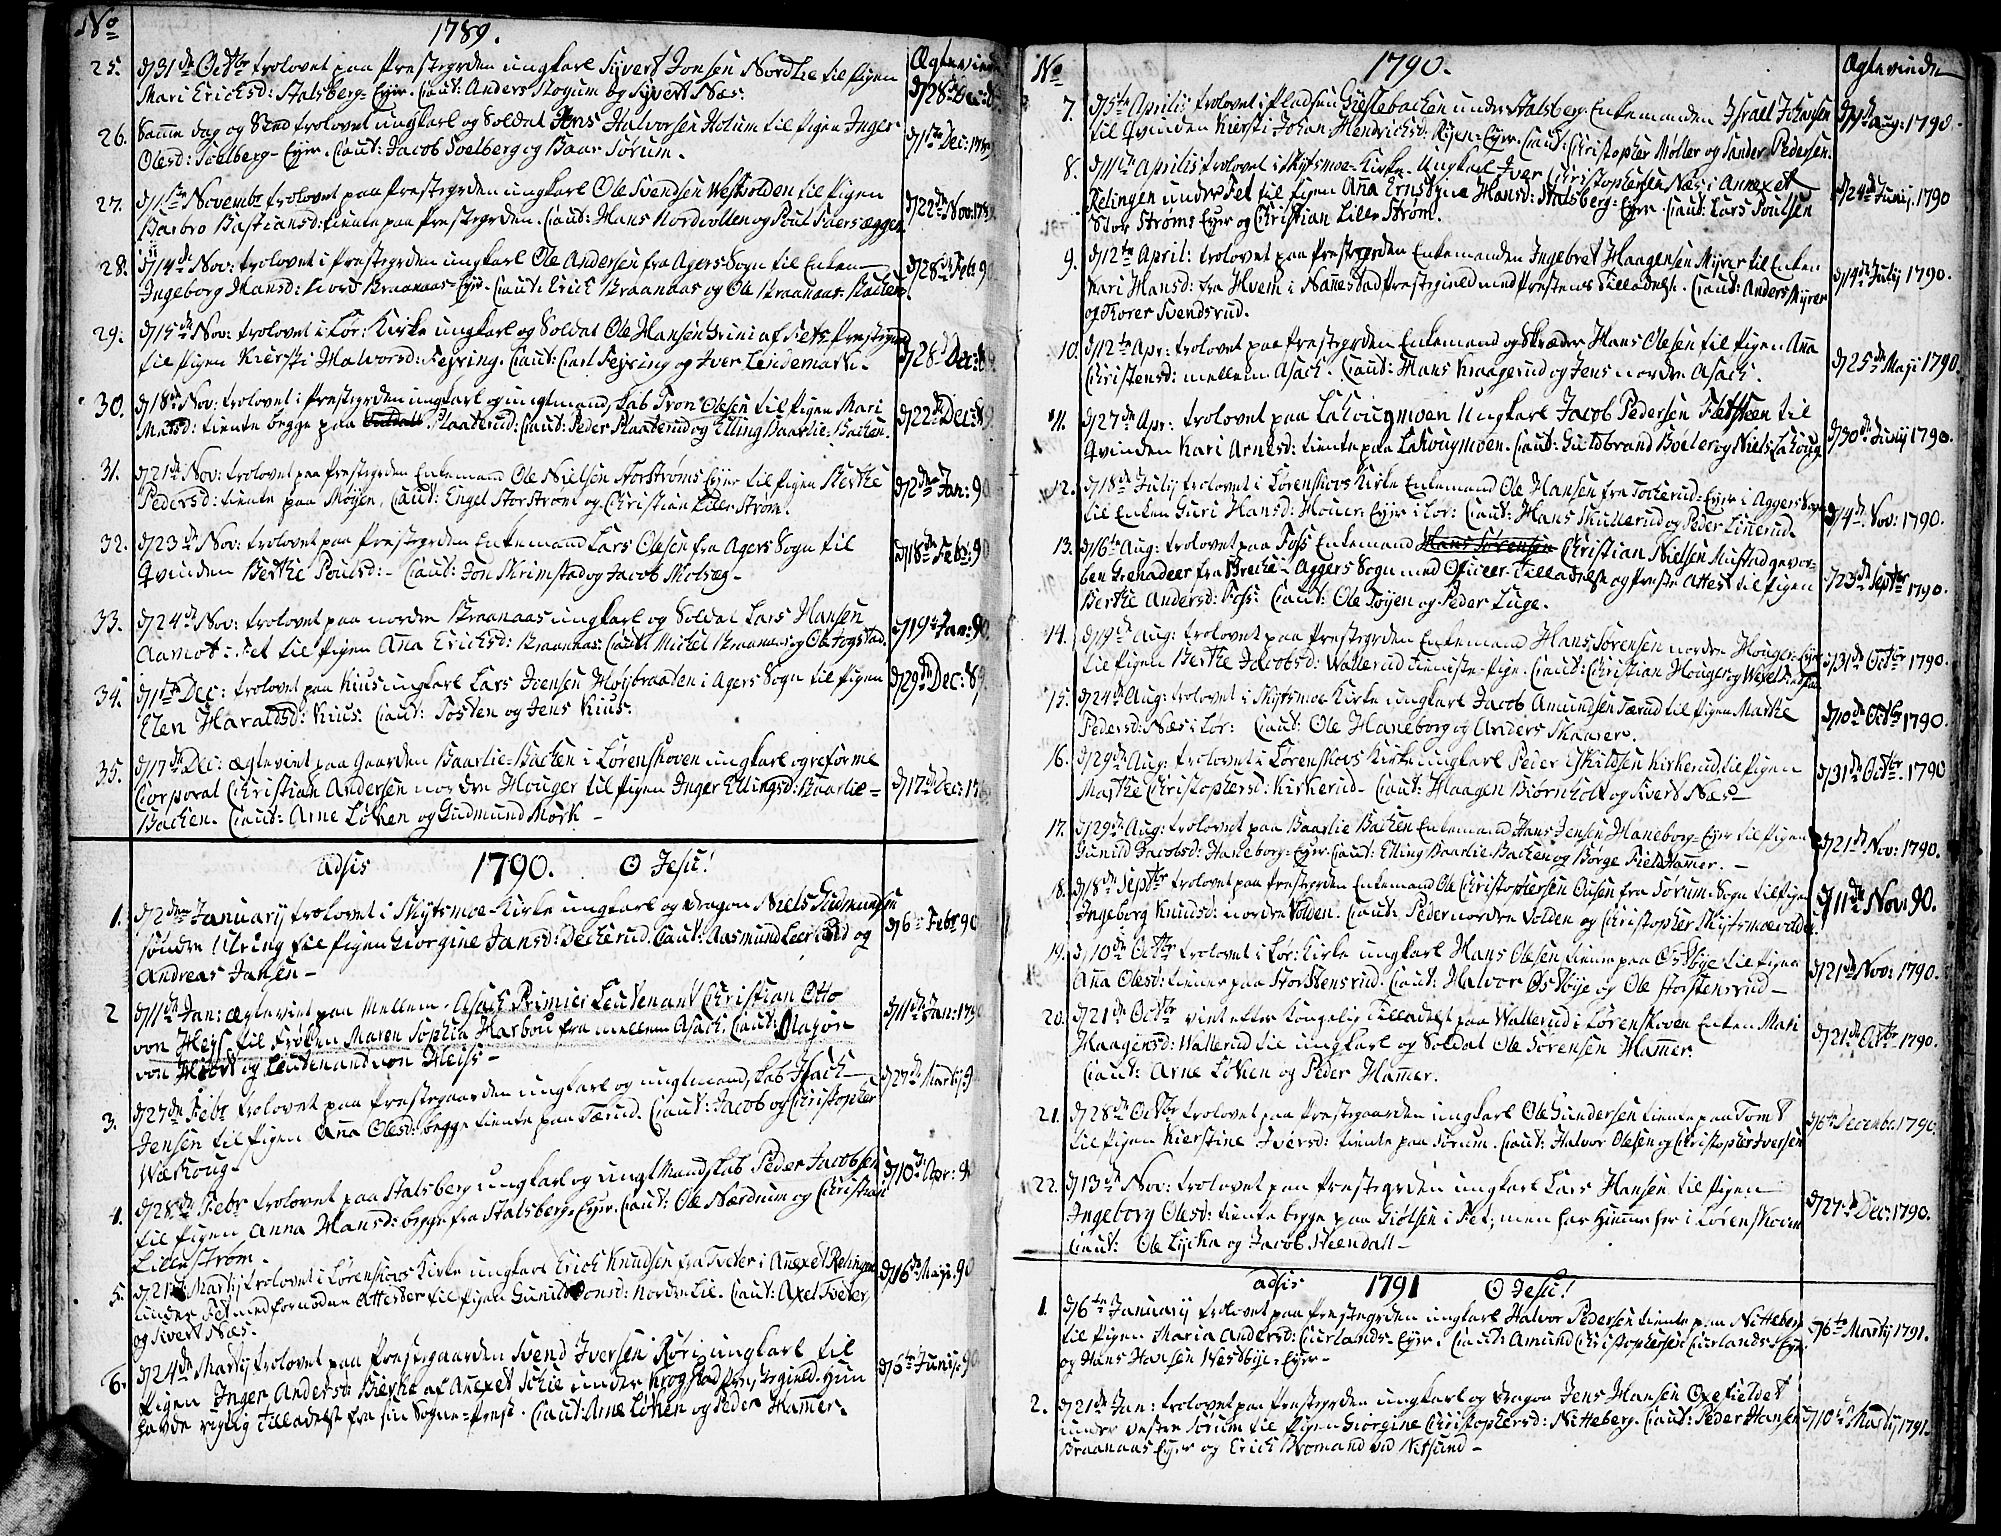 No 1789.
Ægtevinde
25. d 31de Octbr trolovet paa Prestegrden ungkarl Syvert Jonsen Nordlie til Pigen
Mari Ericksd: Stalsberg-Eyer. Caut: Anders Skogum og Syvert Næs. d 28de Dec:
26. Samme dag og Sted trolovet ungkarl og Soldat Jens Halvorsen Holum til Pigen Inger
Olesd: Soelberg-Eyer. Caut: Jacob Soelberg og Baar Sørum. d 1ste Dec: 1789
27. d 1ste Novembr trolovet paa Prestegrden ungkarl Ole Svendsen Westvolden til Pigen
Barbro Bastiansd: tiente paa Prestegrden. Caut: Hans Nordvollen og Poul d 22de Nov: 1789
28. d 14de Nov: trolovet i Prestegrden ungkarl Ole Andersen fra Agers-Sogn til Enken
Ingeborg Hansd: Nord Braanaas-Eyer. Caut: Erich Braanaas og Ole Braanaas-Backen. d 28de Febr 9
29. d 15de Nov: trolovet i Lør: Kirke ungkarl og Soldat Ole Hansen Grini af Fets Prestegield
til Pigen Kiersti Halvorsd: Feyring. Caut: Carl Feyring og Iver Lindemark. d 28de Dec:
30. d 18de Nov: trolovet i Prestegrden ungkarl og ungtmandskab Tron Olesen til Pigen Mari
Matsd: tiente begge paa Plaaterud: Caut: Peder Plaaterud og Elling Baarlie-Backen. d 22de Dec: 89
31. d 21de Nov: trolovet paa Prestegrden Enkemand Ole Nielsen Storstrøms Eyer til Pigen Berthe
Pedersd: tiente paa Moyen, Caut: Engel Storstrøm og Christian Lille Strøm. d 2den Jan: 90
32. d 23de Nov: trolovet paa Prestegrden Enkemand Lars Olesen fra Agers Sogn til
Qvinden Berthe Poulsd:- Caut: Jon Skrimstad og Jacob Skolseg- d 18de Febr: 90
33. d 24de Nov: trolovet paa nordre Braanaas ungkarl og Soldat Lars Hansen
Aamot i Fet til Pigen Ana Ericksd: Braanaas. Caut: Michel Braanaas og Ole Togstad. d 19de Jan: 90
34. d 1ste Dec: trolovet paa Kius ungkarl Lars Jensen Høybraaten i Agers Sogn til Pigen
Elen Haraldsd: Kius. Caut: Tosten og Jens Kius. d 29de Dec: 89
35. d 17de Dec: ægteviet paa Gaarden Baarlie-Backen i Lørenskoven ungkarl og reforme
Corporal Christian Andersen nordre Houger til Pigen Inger Ellingsd: Baarlie=
Backen. Caut: Arne Løken og Gudmund Mørk - d 17de Dec:
adsis 1790. O Jesu!
1. d 2den January trolovet i Skytsmoe-Kirke ungkarl og dragon Niels Gudmundsen
søndre Ulering til Pigen Giorgine Jansd: Deckerud. Caut: Aasmund Leerud og
Andreas Jansen - d 6te Febr 90
2 d 11te Jan: ægteviet paa Mellem-Asach Primier Leutenant Christian Otto
von Heys. til Frøken Maren Sophia Harbou fra mellem Asach, Caut: Major
von og Leutenant von Heiss- d 11te Jan: 1790
3. d 27de Febr trolovet paa Prestegaarden ungkarl og ungtmandskab Isach
Jensen til Pigen Ana Olesd: begge tiente paa Tærud. Caut: Jacob og Christopher
Wæskoug- d 27de Martij 9
4. d 28de Febr trolovet paa Stalsberg ungkarl og ungtMandskab Peder Jacobsen
til Pigen Anna Hansd: begge fra Stalsberg-Eyer. Caut: Ole Nærdrum og Christian
Lillestrøm. d 10de Apr: 9
5. d 21de Martij trolovet i Lørenskovs Kirke ungkarl Erich Knudsen fra Tveter i Anexet Relingen
under Fet med fornøden Attester til Pigen Gunild Jonsd: Nordre Lie. Caut: Axel Tveter
og Sivert Næs. d 16de Maji: 90
6. d 24de Martij trolovet paa Prestegaarden Svend Iversen Røri ungkarl til
Pigen Inger Andersd: Bierke af Anexet Schie under Krogstad Prestegield. Hun
havde rigtig Tilladelse fra sin Sogne-Prest. Caut: Arne Løken og Peder Hamer. d 6te Junij: 90
No 1790. Ægtevinde
7. d 5te Aprilis trolovet i Pladsen Gieslebachen under Stalsberg Enkemanden Israel Johansen
til Qvinden Kiersti Johan Hendricksd: Ryen-Eyer. Caut: Christopher Møller og Sander Pedersen. Aug: 1790.
8. d 11te Aprilis trolovet i Skytsmoe-Kirke Ungkarl Iver Christophersen Næs i Annexet
Relingen under Fet til Pigen Ana Ernstine Hansd: Stalsberg-Eyer. Caut: Lars Poulsen
Stor Strøms Eyer og Christian Lille Strøm. d 24de Junij. 1790
9. d 12te April: trolovet paa Prestegrden Enkemanden Ingebret Haagensen Myrer til Enken
Kari Hansd: fra Hvem i Nanestad Prestegield med Prestens Tilladelse. Caut: Anders Myrer
og Korer Svendsrud. d 14de July 1790.
10. d 12te Apr: trolovet paa Prestegrden Enkemand og Skræder Hans Olesen til Pigen Ana
Christensd: mellem Asach. Caut: Hans Kraagerud og Jens nordre Asach. d 25de Maji 1790.
11. d 27de Apr: trolovet paa Lakougmoen Ungkarl Jacob Pedersen Fetsteen til
Qvinden Kari Arnesd: tiente paa Lakougmoen. Caut: Guldbrand Boeler og Niels Lakoug d 30de Junij 1790.
12. d 18de July trolovet i Lørenskovs Kirke Enkemand Ole Hansen fra Tockerud-Eyer i Aggers Sogn
til Enken Guri Hansd: Houer-Eyer i Lør: Caut: Hans Skullerud og Peder Linerud. d 14de Nov: 1790.
13. d 16te Aug: trolovet paa Foss Enkemand Hans Sørensen Christian Nielsen Mustad gevor=
ben Grenadeer fra Brecke-Aggers Sogn med Officeer-Tilladelse og Prestens Attest til Pigen
Berthe Andersd: Foss. Caut: Ole Tøyen og Peder Luge. d 23de Septbr 1790.
14. d 19de Aug: trolovet paa Prestegrden Enkemand Hans Sørensen nordre Houger-Eyer
til Pigen Berthe Jacobsd: Wallerud tieneste-Pige. Caut: Christian Houger og Wexel d 31de Octbr 1790.
15. d 24de Aug: trolovet i Skytsmoe Kirke ungkarl Jacob Amundsen Tærud til Pigen Marthe
Pedersd: Næs i Lør: Caut: Ole Haneborg og Anders Skaarer. d 10de Octbr 1790.
16. d 29de Aug: trolovet i Lørenskovs Kirke ungkarl Peder Eskildsen Kirkerud til Pigen
Marthe Christophersd: Kirkerud - Caut: Haagen Biørnholt og Sivert Næs d 31de Octbr. 1790
17. d 29de Aug: trolovet paa Baarlie Backen Enkemand Hans Jensen Haneborg-Eyer til Pigen
Gunild Jacobsd: Haneborg-Eyer. Caut: Elling Baarlie-Backen og Børge Fieldhamer. - d 21de Nov: 1790.
18. d 18de Septbr trolovet paa Prestegrden Enkemand Ole Christophersen Ousen fra Sørum-Sogn til Pigen
Ingeborg Knudsd: nordre Volden. Caut: Peder nordre Volden og Christopher Skytsmoevolden. d 11te Nov: 90.
19. d 10de Octbr trolovet i Lør: Kirke ungkarl Hans Olesen tiener paa Østbye til Pigen
Ana Olesd: tiener paa Stor Stensrud. Caut: Halvor Østbye og Ole Storstensrud- d 21de Nov: 1790.
20. d 21de Octbr viet efter Kongelig Tilladelse paa Wallerud i Lørenskoven Enken Mari
Haagensd: Wallerud til ungkarl og Soldat Ole Sørensen Hamer.
Caut: Arne Løken og Peder Hamer. d 21de Octbr 1790.
21. d 28de Octbr trolovet paa Prestegaarden ungkarl Ole Gundersen tiente paa Tomt
til Pigen Kierstine Iversd: tiente paa Sørum. Caut: Halvor Olesen og Christopher Iversen d 6te Decembr. 1790.
22. d 13de Nov: trolovet paa Prestegrden ungkarl Lars Hansen til Pigen
Ingeborg Olesd: tiente begge paa Giølsen i Fet; men har Hjemme her i Lørenskoven
Caut: Ole Lycka og Jacob Steendall- d 27de Dec: 1790.
adsis 1791 O Jesu!
1. d 6te January trolovet paa Prestegrden ungkarl Halvor Pedersen tiente paa Nitteberg
til Pigen Maria Andersd: Curlands-Eyer. Caut: Amund Christophersen Curlands-Eyer
og Hans Hansen Westbye-Eyer- d 6te Martij 1791.
2. d 21de Jan: trolovet paa Prestegrden ungkarl og dragon Jens Hansen Oxefieldet
under vestre Sørum til Pigen Giorgine Christophersd: Nitteberg. Caut: Peder Hansen
Braanaas Eyer og Erich Bromand ved Nitsund- d 10de Martij 1791.